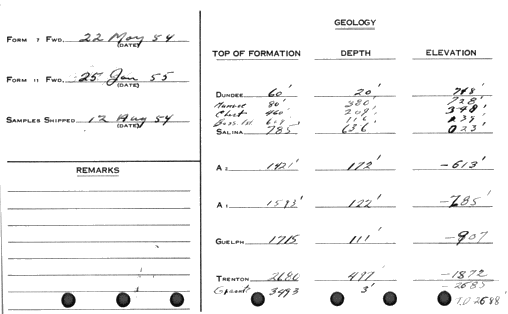 FORM 7 FWD. 22 May 54
(DATE)
FORM 11 FWD. 25 Jan 55
(DATE)
SAMPLES SHIPPED 12 Aug 54
(DATE)
REMARKS
GEOLOGY
TOP OF FORMATION DEPTH ELEVATION
DUNDEE 60' 20' 748'
80' 380' 728'
Chert 460' 209' 348'
Boss. Isl. 669' 116' 139'
SALINA 785 636 023'
A 2 1421' 172' -613'
A 1 1593' 122' -785'
GUELPH 1715 111' -907
TRENTON 2680 497' -1872
Granite 3493 3' -2685
T.D. 2688